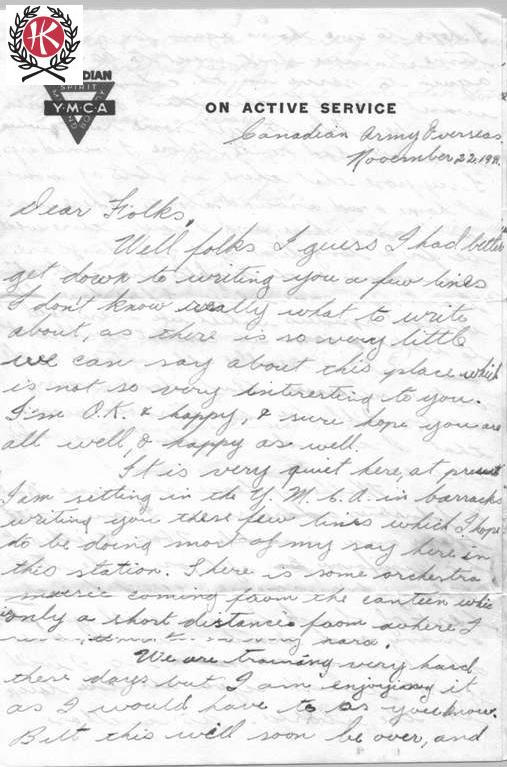 HK
CANADIAN
SPIRIT
Y·M·C·A
MIND BODY
ON ACTIVE SERVICE
Canadian Army Overseas
November 22, 19
Dear Folks,
Well folks I guess I had better
get down to writing you a few lines
I don't know really what to write
about, as there is so very little
we can say about this place which
is not so very interesting to you.
I'me O.K. & happy, & sure hope you are
all well, & happy as well.
It is very quiet here, at present
I am setting in the Y.M.C.A. in barracks
writing you these few lines which I hope
to be doing most of my say here in
this station. There is some orchestra
music coming from the canteen whic
is only a short distance from where I
We are training very hard
these days but I am enjoying it
as I would have to as you know.
But this will soon be over, and